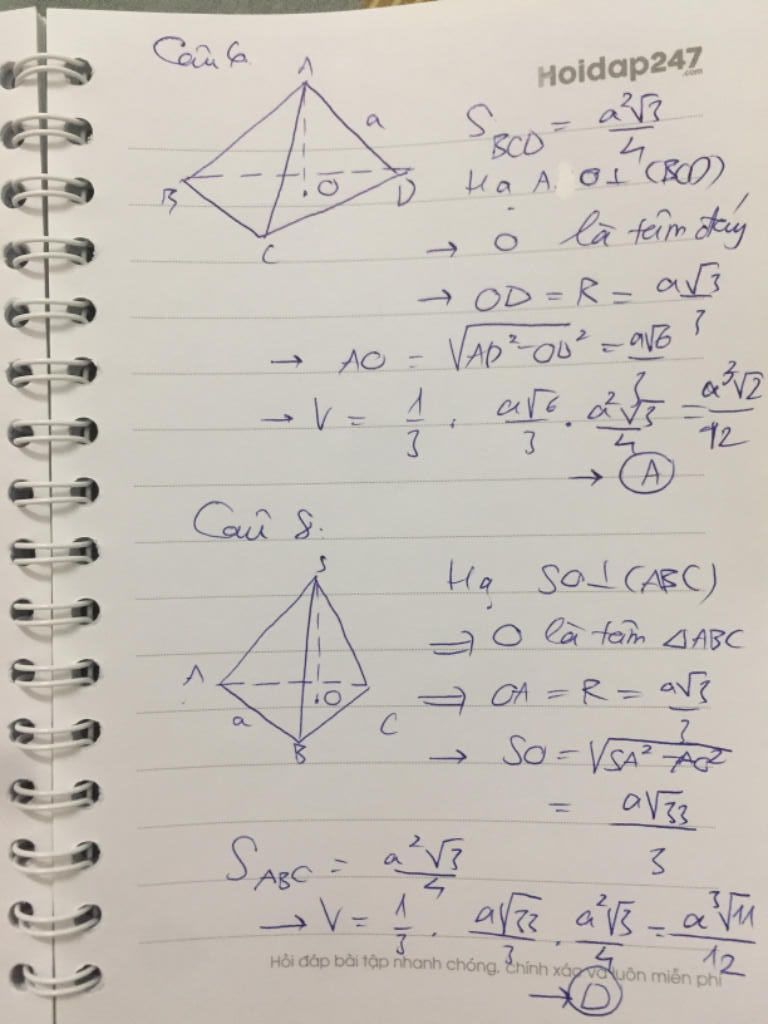 Câu 6
Hoidap247
.com
A
a
B
O
D
C
S_BCD = a²√3/4
Hạ A O⊥ (BCD)
→ O là tâm đáy
→ OD = R = a√3/3
→ AO = √(AD²-OD²) = a√6/3
→ V = 1/3 . a√6/3 . a²√3/4 = a³√2/12
→ A
Câu 8.
S
A
O
a
C
B
Hạ SO⊥(ABC)
⇒ O là tâm △ABC
⇒ OA = R = a√3/3
→ SO = √(SA² - AO²)
= a√33/3
S_ABC = a²√3/4
→ V = 1/3 . a√33/3 . a²√3/4 = a³√11/12
Hỏi đáp bài tập nhanh chóng, chính xác và luôn miễn phí
→ D